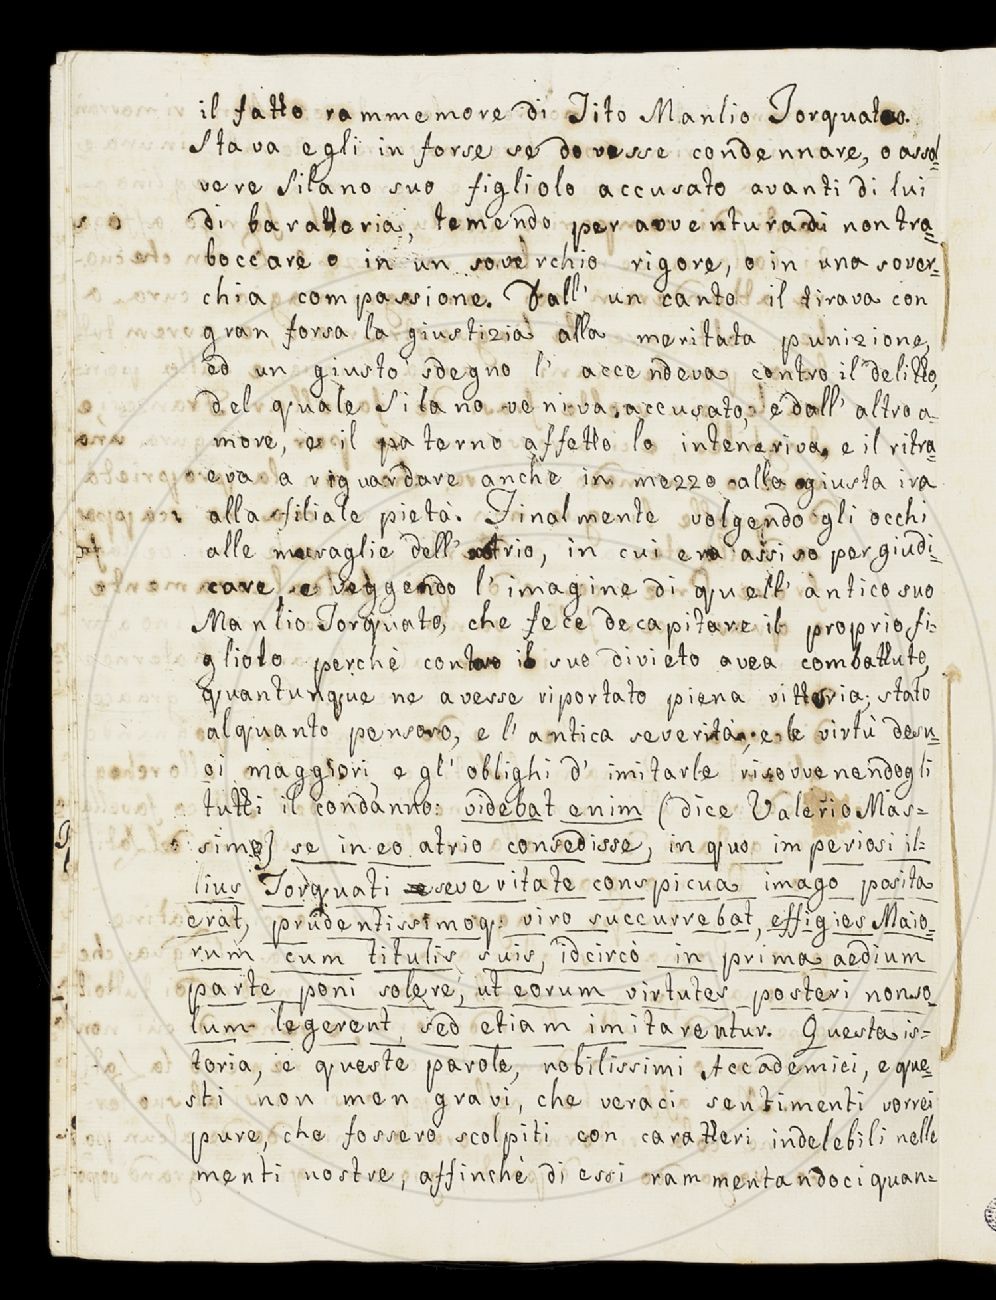 il fatto rammemore di Tito Manlio Torquato.
Stava egli in forse se dovesse condennare, o assol=
vere Silano suo figliolo accusato avanti di lui
di baratteria, temendo per avventura di non tra=
boccare o in un soverchio rigore, o in una sover=
chia compassione. Dall' un canto il tirava con
gran forsa la giustizia alla meritata punizione,
ed un giusto sdegno l' accendeva contro il delitto,
del quale Silano veniva accusato, e dall' altro a=
more, e il paterno affetto lo inteneriva, e il ritra=
eva a riguardare anche in mezzo alla giusta ira
alla filiale pietà. Finalmente volgendo gli occhi
alle muraglie dell' atrio, in cui era assiso per giudi=
care, e veggendo l' imagine di quell' antico suo
Manlio Torquato, che fece decapitare il proprio fi=
gliolo perchè contro il suo divieto avea combattuto,
quantunque ne avesse riportato piena vittoria; stato
alquanto pensoso, e l' antica severità, e le virtù de su=
oi maggiori, e gl' oblighi d' imitarle risovvenendogli
tutti il condanno: videbat enim (dice Valerio Mas=
simo) se in eo atrio consedisse, in quo imperiosi il=
lius Torquati severitate conspicua imago posita
erat, prudentissimoq: viro succurrebat, effigies Maio=
rum cum titulis suis, idcircò in prima aedium
parte poni solere, ut eorum virtutes posteri non so=
lum legerent, sed etiam imitarentur. Questa is=
toria, e queste parole, nobilissimi Accademici, e que=
sti non men gravi, che veraci sentimenti vorrei
pure, che fossero scolpiti con caratteri indelebili nelle
menti nostre, affinchè di essi rammentandoci quan=